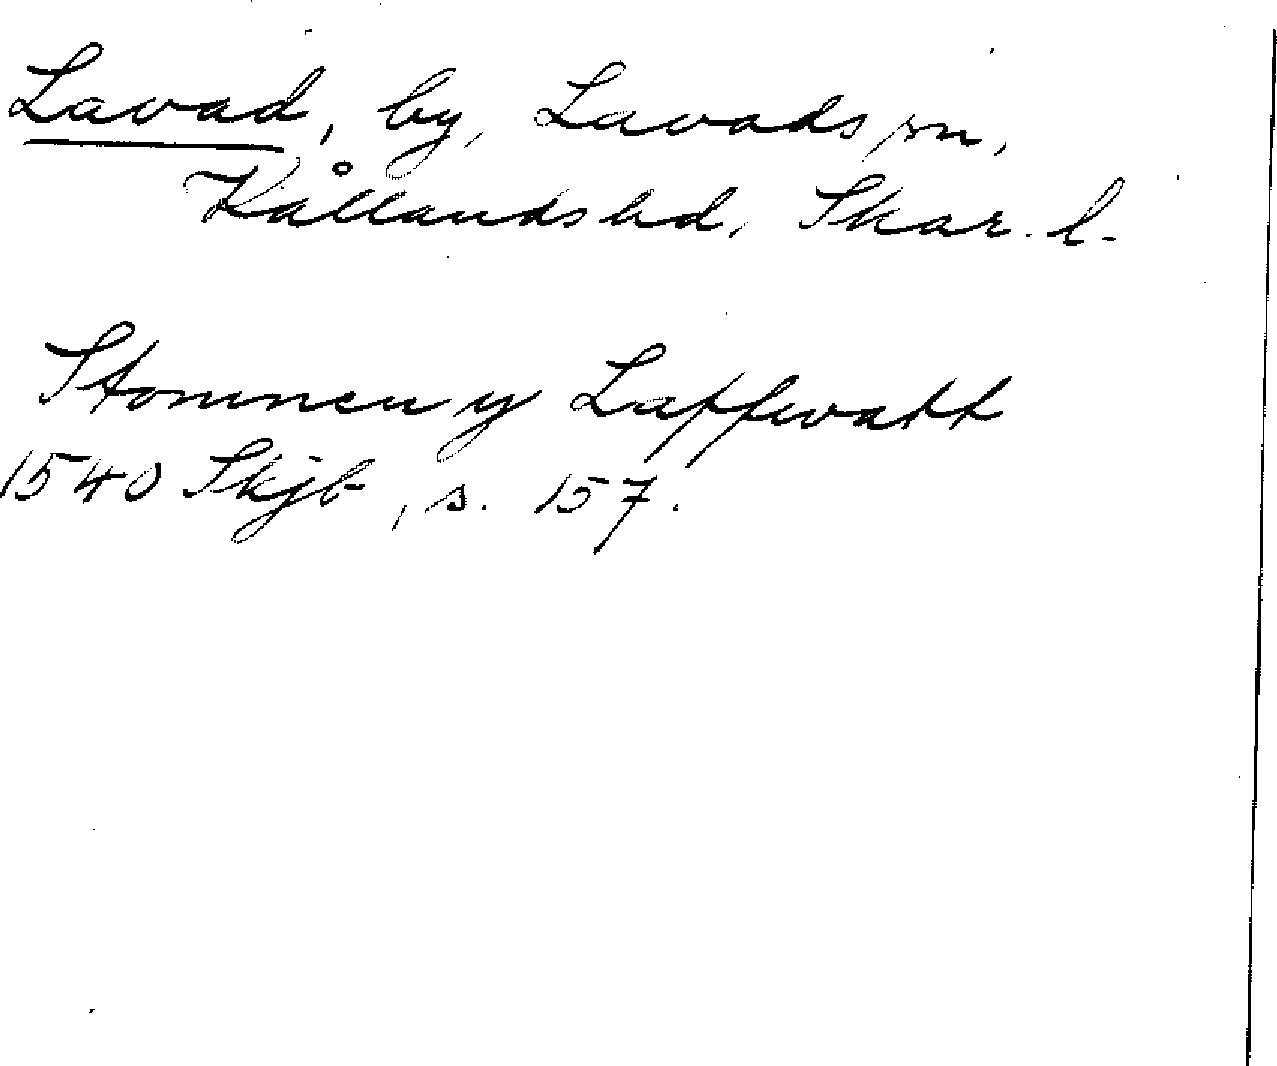 Lavad, by, Lavads sn,
Kållands hd, Skar. l.
Stommen y Laffwatt
1540 Skjb, s. 157.